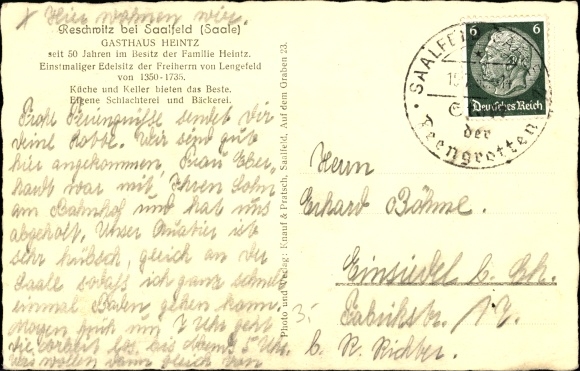 x Hier wohnen wir.
Reschwitz bei Saalfeld (Saale)
GASTHAUS HEINTZ
seit 50 Jahren im Besitz der Familie Heintz.
Einstmaliger Edelsitz der Freiherrn von Lengefeld
von 1350-1735.
Küche und Keller bieten das Beste.
Eigene Schlachterei und Bäckerei.
sendet Dir
deine Lotte. Wir sind gut
hier angekommen, Frau Eber-
hardt war mit Ihren Sohn
am Bahnhof und hat uns
abgeholt. Unser Quatier ist
sehr hübsch, gleich an der
Saale sodaß ich ganz schnell
einmal Baden gehen kann.
Morgen früh um 7 Uhr geht
die Arbeit los, bis abends 5 Uhr.
wollen dann gleich von
Photo und Verlag: Knauf & Pratsch, Saalfeld, Auf dem Graben 23.
6 6
Deutsches Reich
SAALFELD (SAALE)
der
Feengrotten
Herrn
Erhard Böhme.
Einsiedel b. Ch.
Fabrikstr. 17.
b. R. Richter.